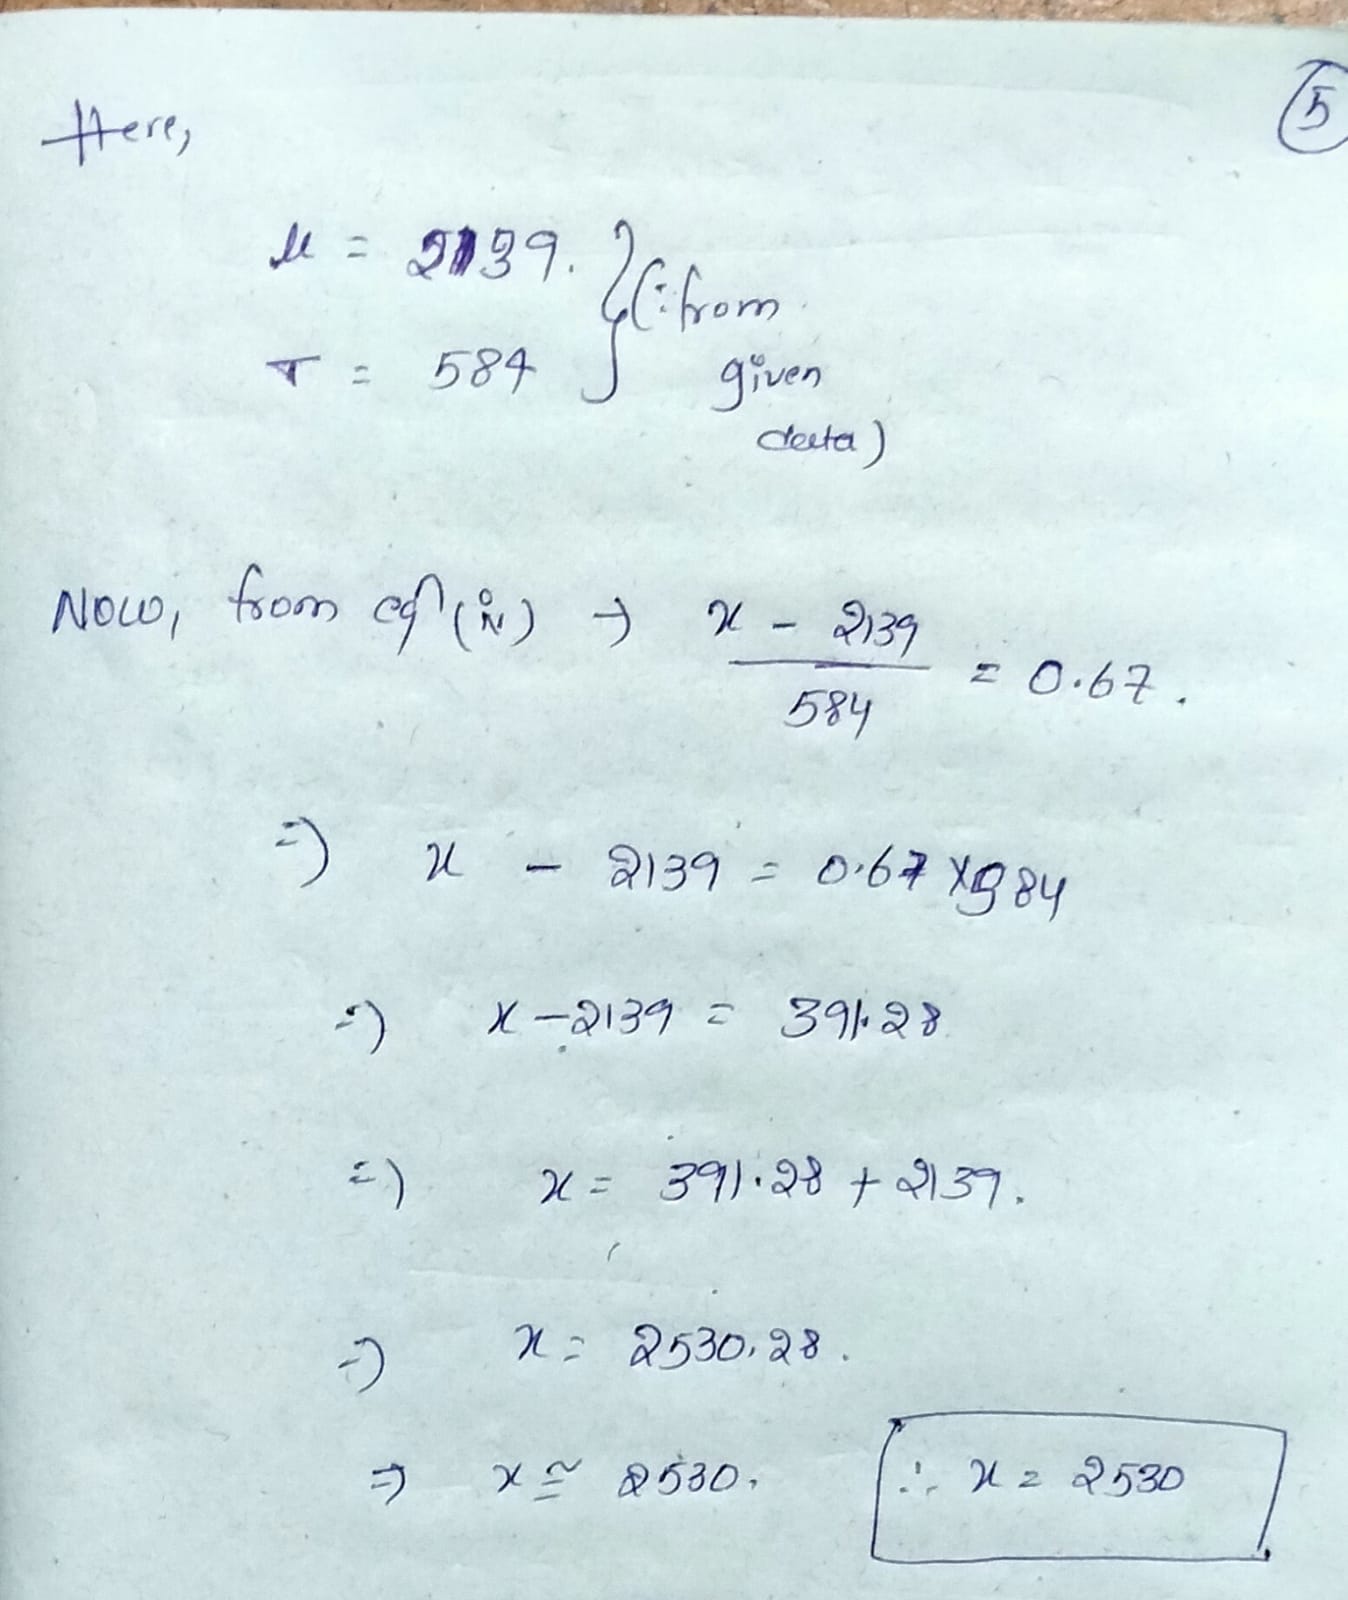 5
Here,
μ = 2139.
σ = 584
(∵ from
given
data)
Now, from eqn (iv) → x - 2139 / 584 = 0.67.
=) x - 2139 = 0.67 x 584
=) x - 2139 = 391.28
=) x = 391.28 + 2139.
=) x = 2530.28.
=) x ≅ 2530.
∴ x = 2530